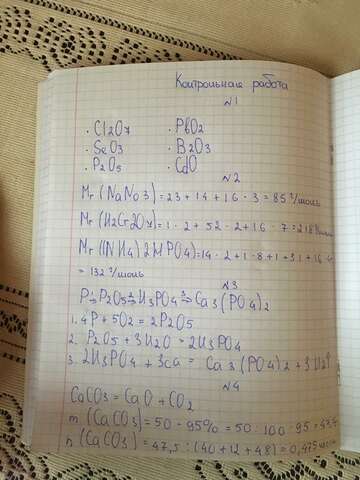 Контрольная работа
№1
· Cl2O7 · PbO2
· SeO3 · B2O3
· P2O5 · CdO
№2
Mr (NaNO3) = 23 + 14 + 16 · 3 = 85 г/моль
Mr (H2Cr2O7) = 1 · 2 + 52 · 2 + 16 · 7 = 218
Mr ((NH4)2HPO4) = 14 · 2 + 1 · 8 + 1 + 31 + 16 · 4
= 132 г/моль
№3
P → P2O5 → H3PO4 → Ca3(PO4)2
1. 4P + 5O2 = 2P2O5
2. P2O5 + 3H2O = 2H3PO4
3. 2H3PO4 + 3Ca = Ca3(PO4)2 + 3H2↑
№4
CaCO3 = CaO + CO2
m (CaCO3) = 50 - 95% = 50 : 100 · 95 = 47,5
n (CaCO3) = 47,5 : (40 + 12 + 48) = 0,475 моль